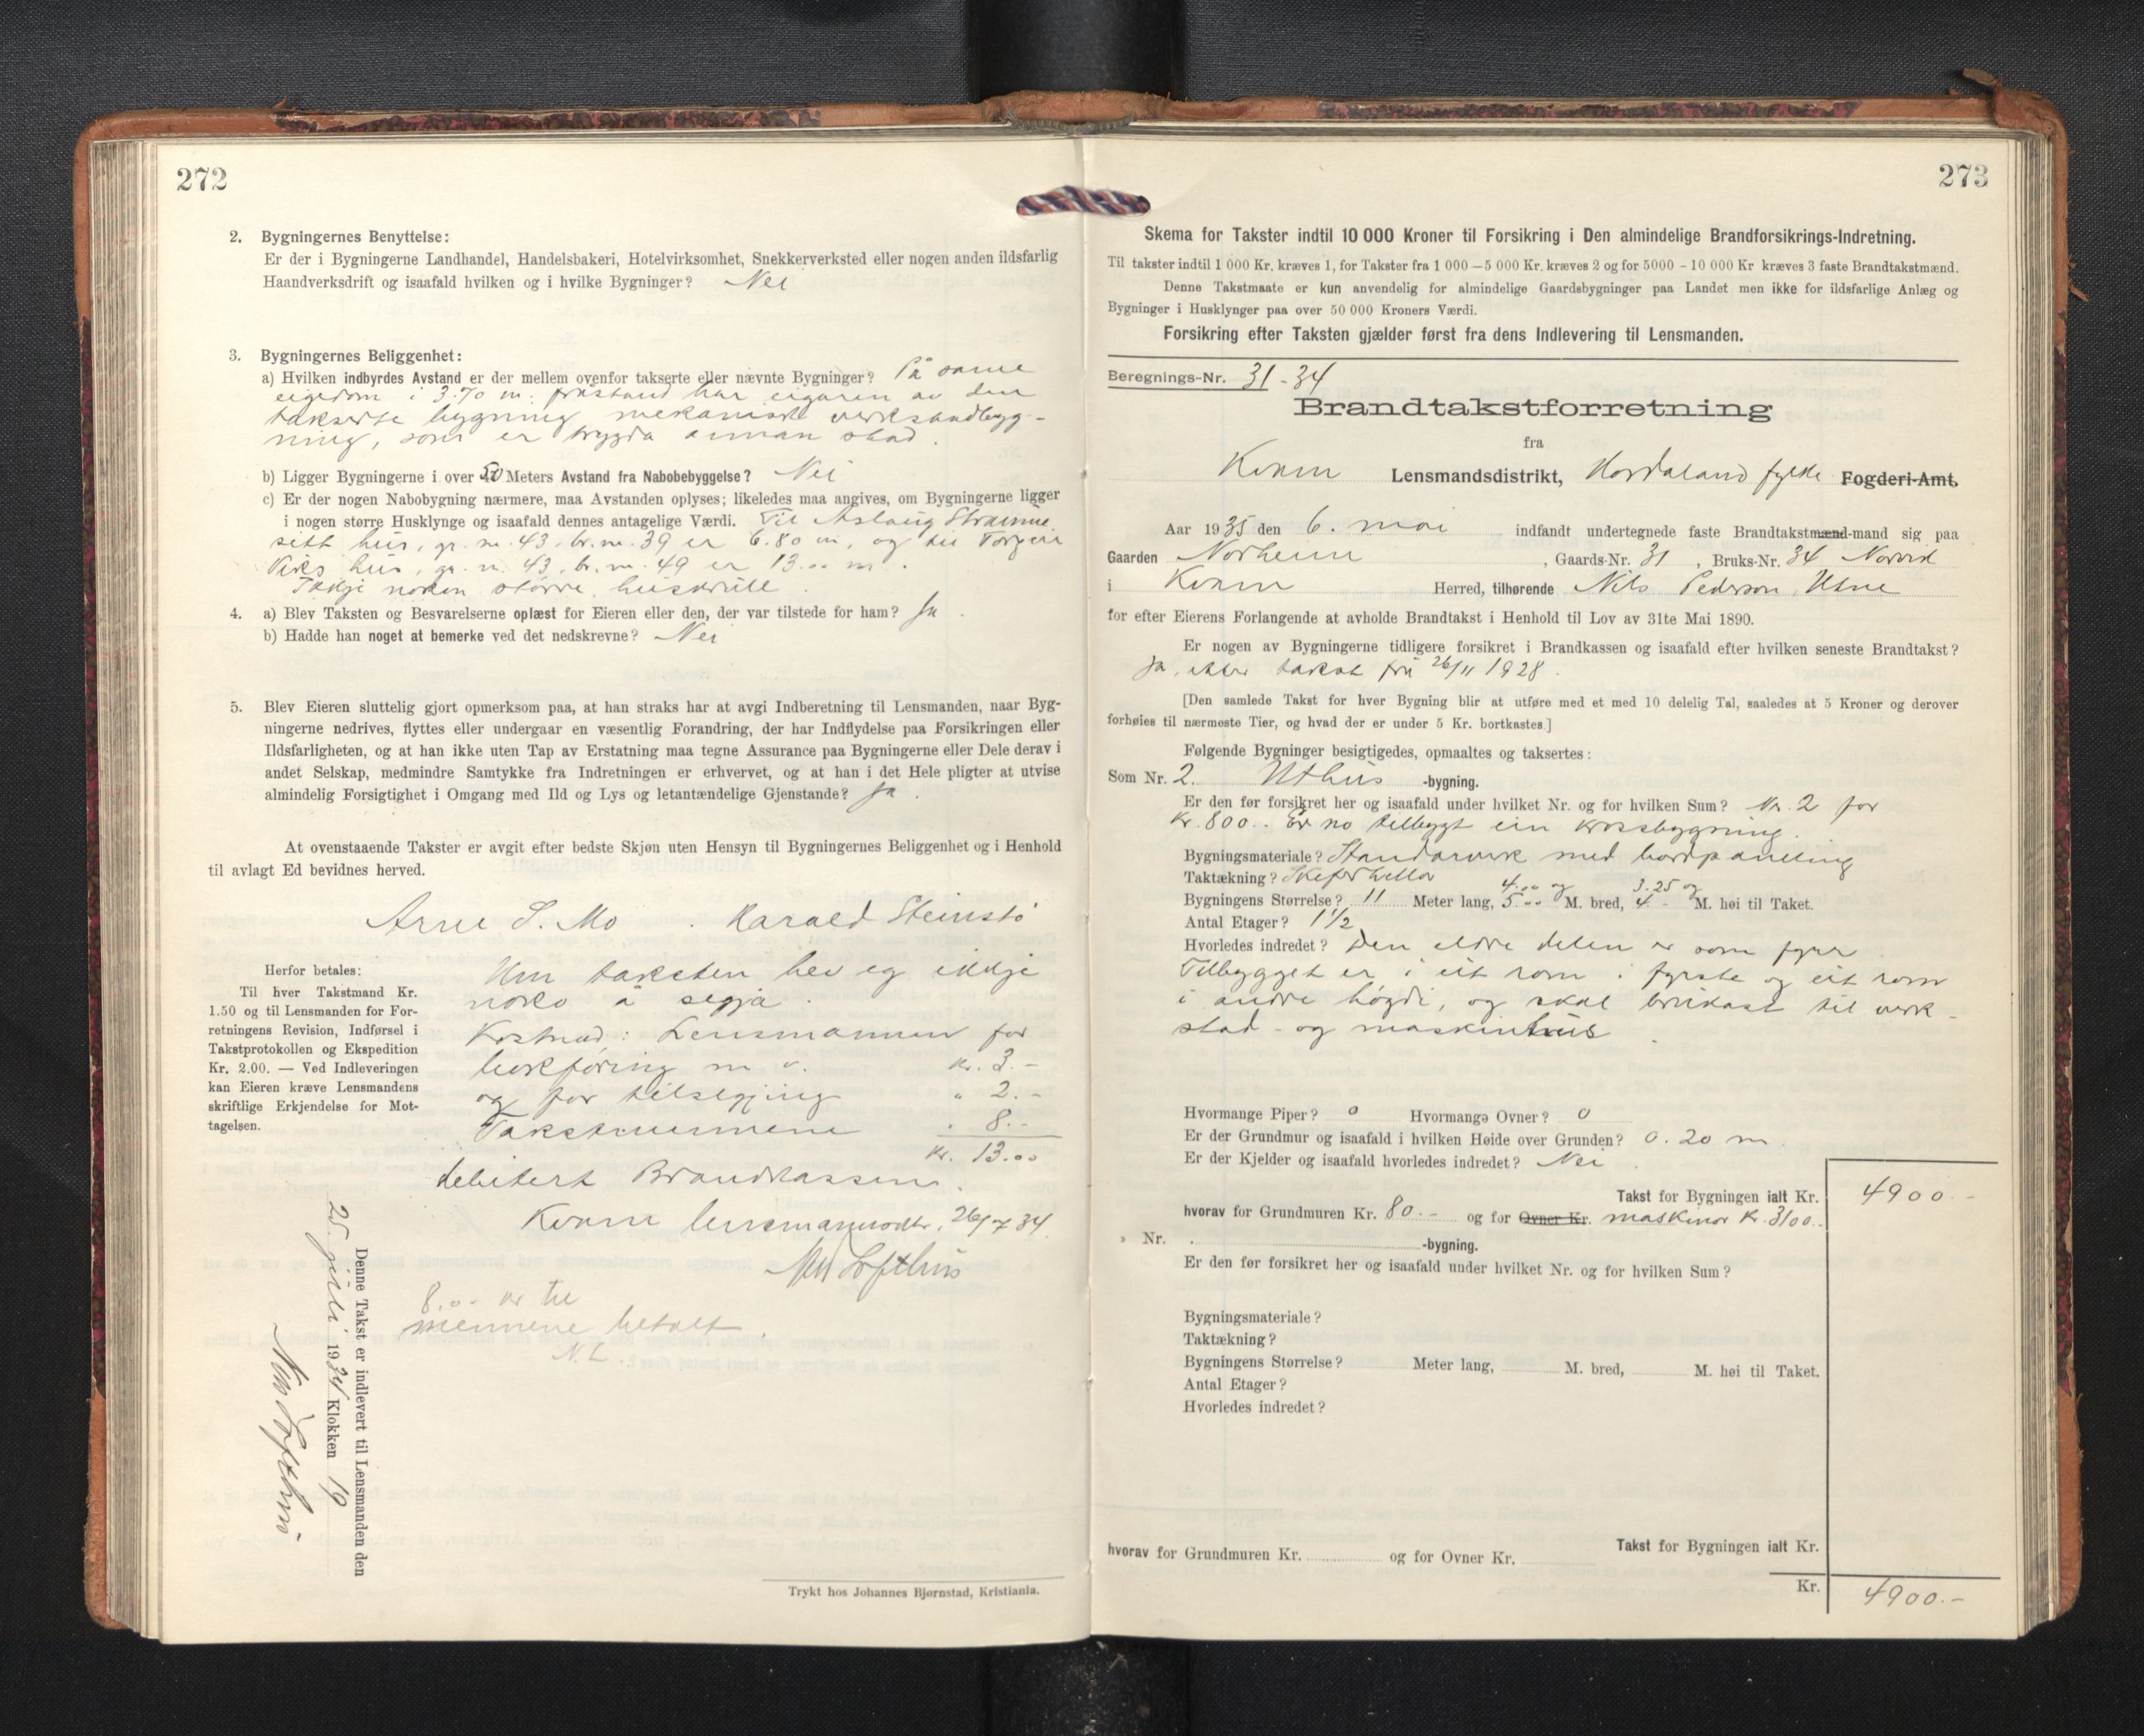 272
2. Bygningernes Benyttelse:
Er der i Bygningerne Landhandel, Handelsbakeri, Hotelvirksomhet, Snekkerverksted eller nogen anden ildsfarlig
Haandverksdrift og isaafald hvilken og i hvilke Bygninger? Nei
3. Bygningernes Beliggenhet:
a) Hvilken indbyrdes Avstand er der mellem ovenfor takserte eller nævnte Bygninger? På same
eigedom i 3.70 m. fråstand har eigaren av den
takserte bygning mekanisk verkstadbygg-
ning, som er trygda annan stad.
b) Ligger Bygningerne i over 50 Meters Avstand fra Nabobebyggelse? Nei
c) Er der nogen Nabobygning nærmere, maa Avstanden oplyses; likeledes maa angives, om Bygningerne ligger
i nogen større Husklynge og isaafald dennes antagelige Værdi. Til Aslaug Straume
sitt hus, gr. nr. 43, br. nr. 39 er 6.80 m, og til Torgeir
Viks hus, gr. n. 43, br. nr. 49 er 13.00 m.
Ikkje noken større huskrull.
4. a) Blev Taksten og Besvarelserne oplæst for Eieren eller den, der var tilstede for ham? Ja.
b) Hadde han noget at bemerke ved det nedskrevne? Nei
5. Blev Eieren sluttelig gjort opmerksom paa, at han straks har at avgi Indberetning til Lensmanden, naar Byg-
ningerne nedrives, flyttes eller undergaar en væsentlig Forandring, der har Indflydelse paa Forsikringen eller
Ildsfarligheten, og at han ikke uten Tap av Erstatning maa tegne Assurance paa Bygningerne eller Dele derav i
andet Selskap, medmindre Samtykke fra Indretningen er erhvervet, og at han i det Hele pligter at utvise
almindelig Forsigtighet i Omgang med Ild og Lys og letantændelige Gjenstande? Ja.
At ovenstaaende Takster er avgit efter bedste Skjøn uten Hensyn til Bygningernes Beliggenhet og i Henhold
til avlagt Ed bevidnes herved.
Arne S. Mo . Harald Steinstø
Herfor betales:
Til hver Takstmand Kr.
1.50 og til Lensmanden for For-
retningens Revision, Indførsel i
Takstprotokollen og Ekspedition
Kr. 2.00. — Ved Indleveringen
kan Eieren kræve Lensmandens
skriftlige Erkjendelse for Mot-
tagelsen.
Um taksten hev eg ikkje
noko å segja.
Kostnad: Lensmannen for
bokføring m v. Kr. 3.-
og for tilsegjing " 2.-
Takstmennene " 8.-
Kr. 13.00
debitert Brandkassen.
Kvam lensmannsktr. 26/7 34.
Nils Lofthus
8.00 er til
mennene betalt.
N. L.
Denne Takst er indlevert til Lensmanden den
25. juli 1934 Klokken 19
Nils Lofthus
Trykt hos Johannes Bjørnstad, Kristiania.
273
Skema for Takster indtil 10 000 Kroner til Forsikring i Den almindelige Brandforsikrings-Indretning.
Til takster indtil 1 000 Kr. kræves 1, for Takster fra 1 000 – 5 000 Kr. kræves 2 og for 5000 – 10 000 Kr kræves 3 faste Brandtakstmænd.
Denne Takstmaate er kun anvendelig for almindelige Gaardsbygninger paa Landet men ikke for ildsfarlige Anlæg og
Bygninger i Husklynger paa over 50 000 Kroners Værdi.
Forsikring efter Taksten gjælder først fra dens Indlevering til Lensmanden.
Beregnings-Nr. 31-34
Brandtakstforretning
fra
Kvam Lensmandsdistrikt, Hordaland fylke Fogderi-Amt.
Aar 1935 den 6. mai indfandt undertegnede faste Brandtakstmænd-mand sig paa
Gaarden Norheim, Gaards-Nr. 31, Bruks-Nr. 34
i Kvam Herred, tilhørende Nils Pederson Utne
for efter Eierens Forlangende at avholde Brandtakst i Henhold til Lov av 31te Mai 1890.
Er nogen av Bygningerne tidligere forsikret i Brandkassen og isaafald efter hvilken seneste Brandtakst?
Ja, etter takst frå 26/11 1928.
[Den samlede Takst for hver Bygning blir at utføre med et med 10 delelig Tal, saaledes at 5 Kroner og derover
forhøies til nærmeste Tier, og hvad der er under 5 Kr. bortkastes.]
Følgende Bygninger besigtigedes, opmaaltes og taksertes:
Som Nr. 2. Uthus -bygning.
Er den før forsikret her og isaafald under hvilket Nr. og for hvilken Sum? Nr. 2 for
Kr. 800.. Er no tilbygt ein krossbygning.
Bygningsmateriale? Standarverk med bordpaneling
Taktækning? Skiferhellor
Bygningens Størrelse? 11 Meter lang, 4.00 og 5.00 M. bred, 3.25 og 4.- M. høi til Taket.
Antal Etager? 1 1/2
Hvorledes indredet? Den eldre delen er som fyrr
Tilbygget er i eit rom i fyrste og eit rom
i andre høgdi, og skal brukast til verk-
stad- og maskinhus.
Hvormange Piper? 0 Hvormange Ovner? 0
Er der Grundmur og isaafald i hvilken Høide over Grunden? 0.20 m
Er der Kjelder og isaafald hvorledes indredet? Nei
Takst for Bygningen ialt Kr. 4900.-
hvorav for Grundmuren Kr. 80.- og for Ovner Kr. maskinor Kr. 3100.-
Nr. -bygning.
Er den før forsikret her og isaafald under hvilket Nr. og for hvilken Sum?
Bygningsmateriale?
Taktækning?
Bygningens Størrelse? Meter lang, M. bred, M. høi til Taket.
Antal Etager?
Hvorledes indredet?
Takst for Bygningen ialt Kr.
hvorav for Grundmuren Kr. og for Ovner Kr.
Kr. 4900.-